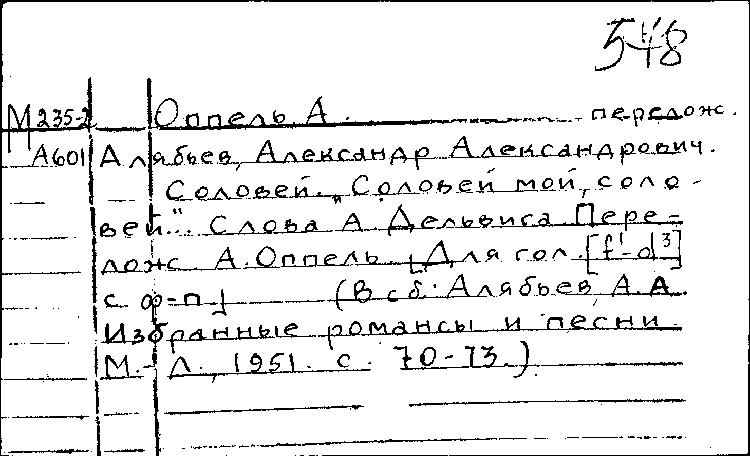 548
М 235-2 Оппель А. перелож.
А601 Алябьев, Александр Александрович.
Соловей. „Соловей мой, соло-
вей". Слова А. Дельвига. Пере-
лож. А. Оппель. [Для гол. [f¹-d³]
с ф-п.] (В сб: Алябьев, А. А.
Избранные романсы и песни.
М.-Л., 1951. с. 70-73.)